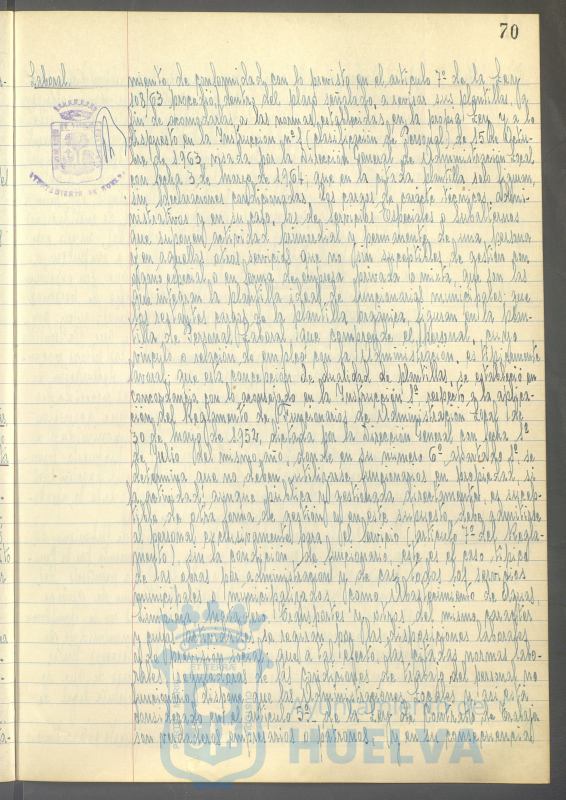 70
Laboral.
miento, de conformidad con lo previsto en el artículo 7º de la Ley
108/63 procedió, dentro del plazo señalado, a revisar sus plantillas, a
fin de acomodarlas a las normas establecidas en la propia Ley y a lo
dispuesto en la Instrucción nº 2 (clasificación de Personal) de 15 de Octu-
bre de 1963, visada por la Dirección General de Administración Local
con fecha 3 de marzo de 1964; que en la citada plantilla solo figuran,
sin declaraciones condicionadas, los cargos de carácter técnicos, admini-
strativos y en su caso, los de servicios Especiales o Subalternos
que suponen actividad primordial y permanente de una persona
y en aquellos otros servicios que no son susceptibles de gestión con
órgano especial, o en forma de empresa privada o mixta, que son las
que integran la plantilla ideal de funcionarios municipales; que
los restantes cargos de la plantilla orgánica, figuran en la plan-
tilla de Personal Laboral, que comprende el personal, cuyo
vínculo o relación de empleo con la Administración, es típicamente
laboral; que esta concepción de dualidad de plantillas, se estableció en
concordancia con lo aconsejado en la Instrucción 1ª respecto a la aplica-
ción del Reglamento de Funcionarios de Administración Local de
30 de mayo de 1952, dictada por la Dirección General con fecha 1º
de Julio del mismo año, donde en su número 6º, apartado 1º se
determina que no deben utilizarse funcionarios en propiedad si
la actividad, aunque pública y gestionada directamente, es suscep-
tible de otra forma de gestión, y en este supuesto, debe admitirse
al personal exclusivamente para el servicio (artículo 7º del Regla-
mento), sin la condición de funcionario; este es el caso típico
de las obras por administración y de casi todos los servicios
municipales o municipalizados, (como, Abastecimiento de Aguas,
Limpieza, Transportes y otros del mismo carácter
y cuyas actividades se regulan por las disposiciones laborales
y de previsión social; que a tal efecto, las citadas normas labo-
rales reguladoras de las condiciones de trabajo del personal no
funcionario, disponen que las Administraciones Locales y así está
considerado en el artículo 5º de la Ley de Contrato de Trabajo
son verdaderos empresarios o patronos; y en su consecuencia
Ayuntamiento de
HUELVA